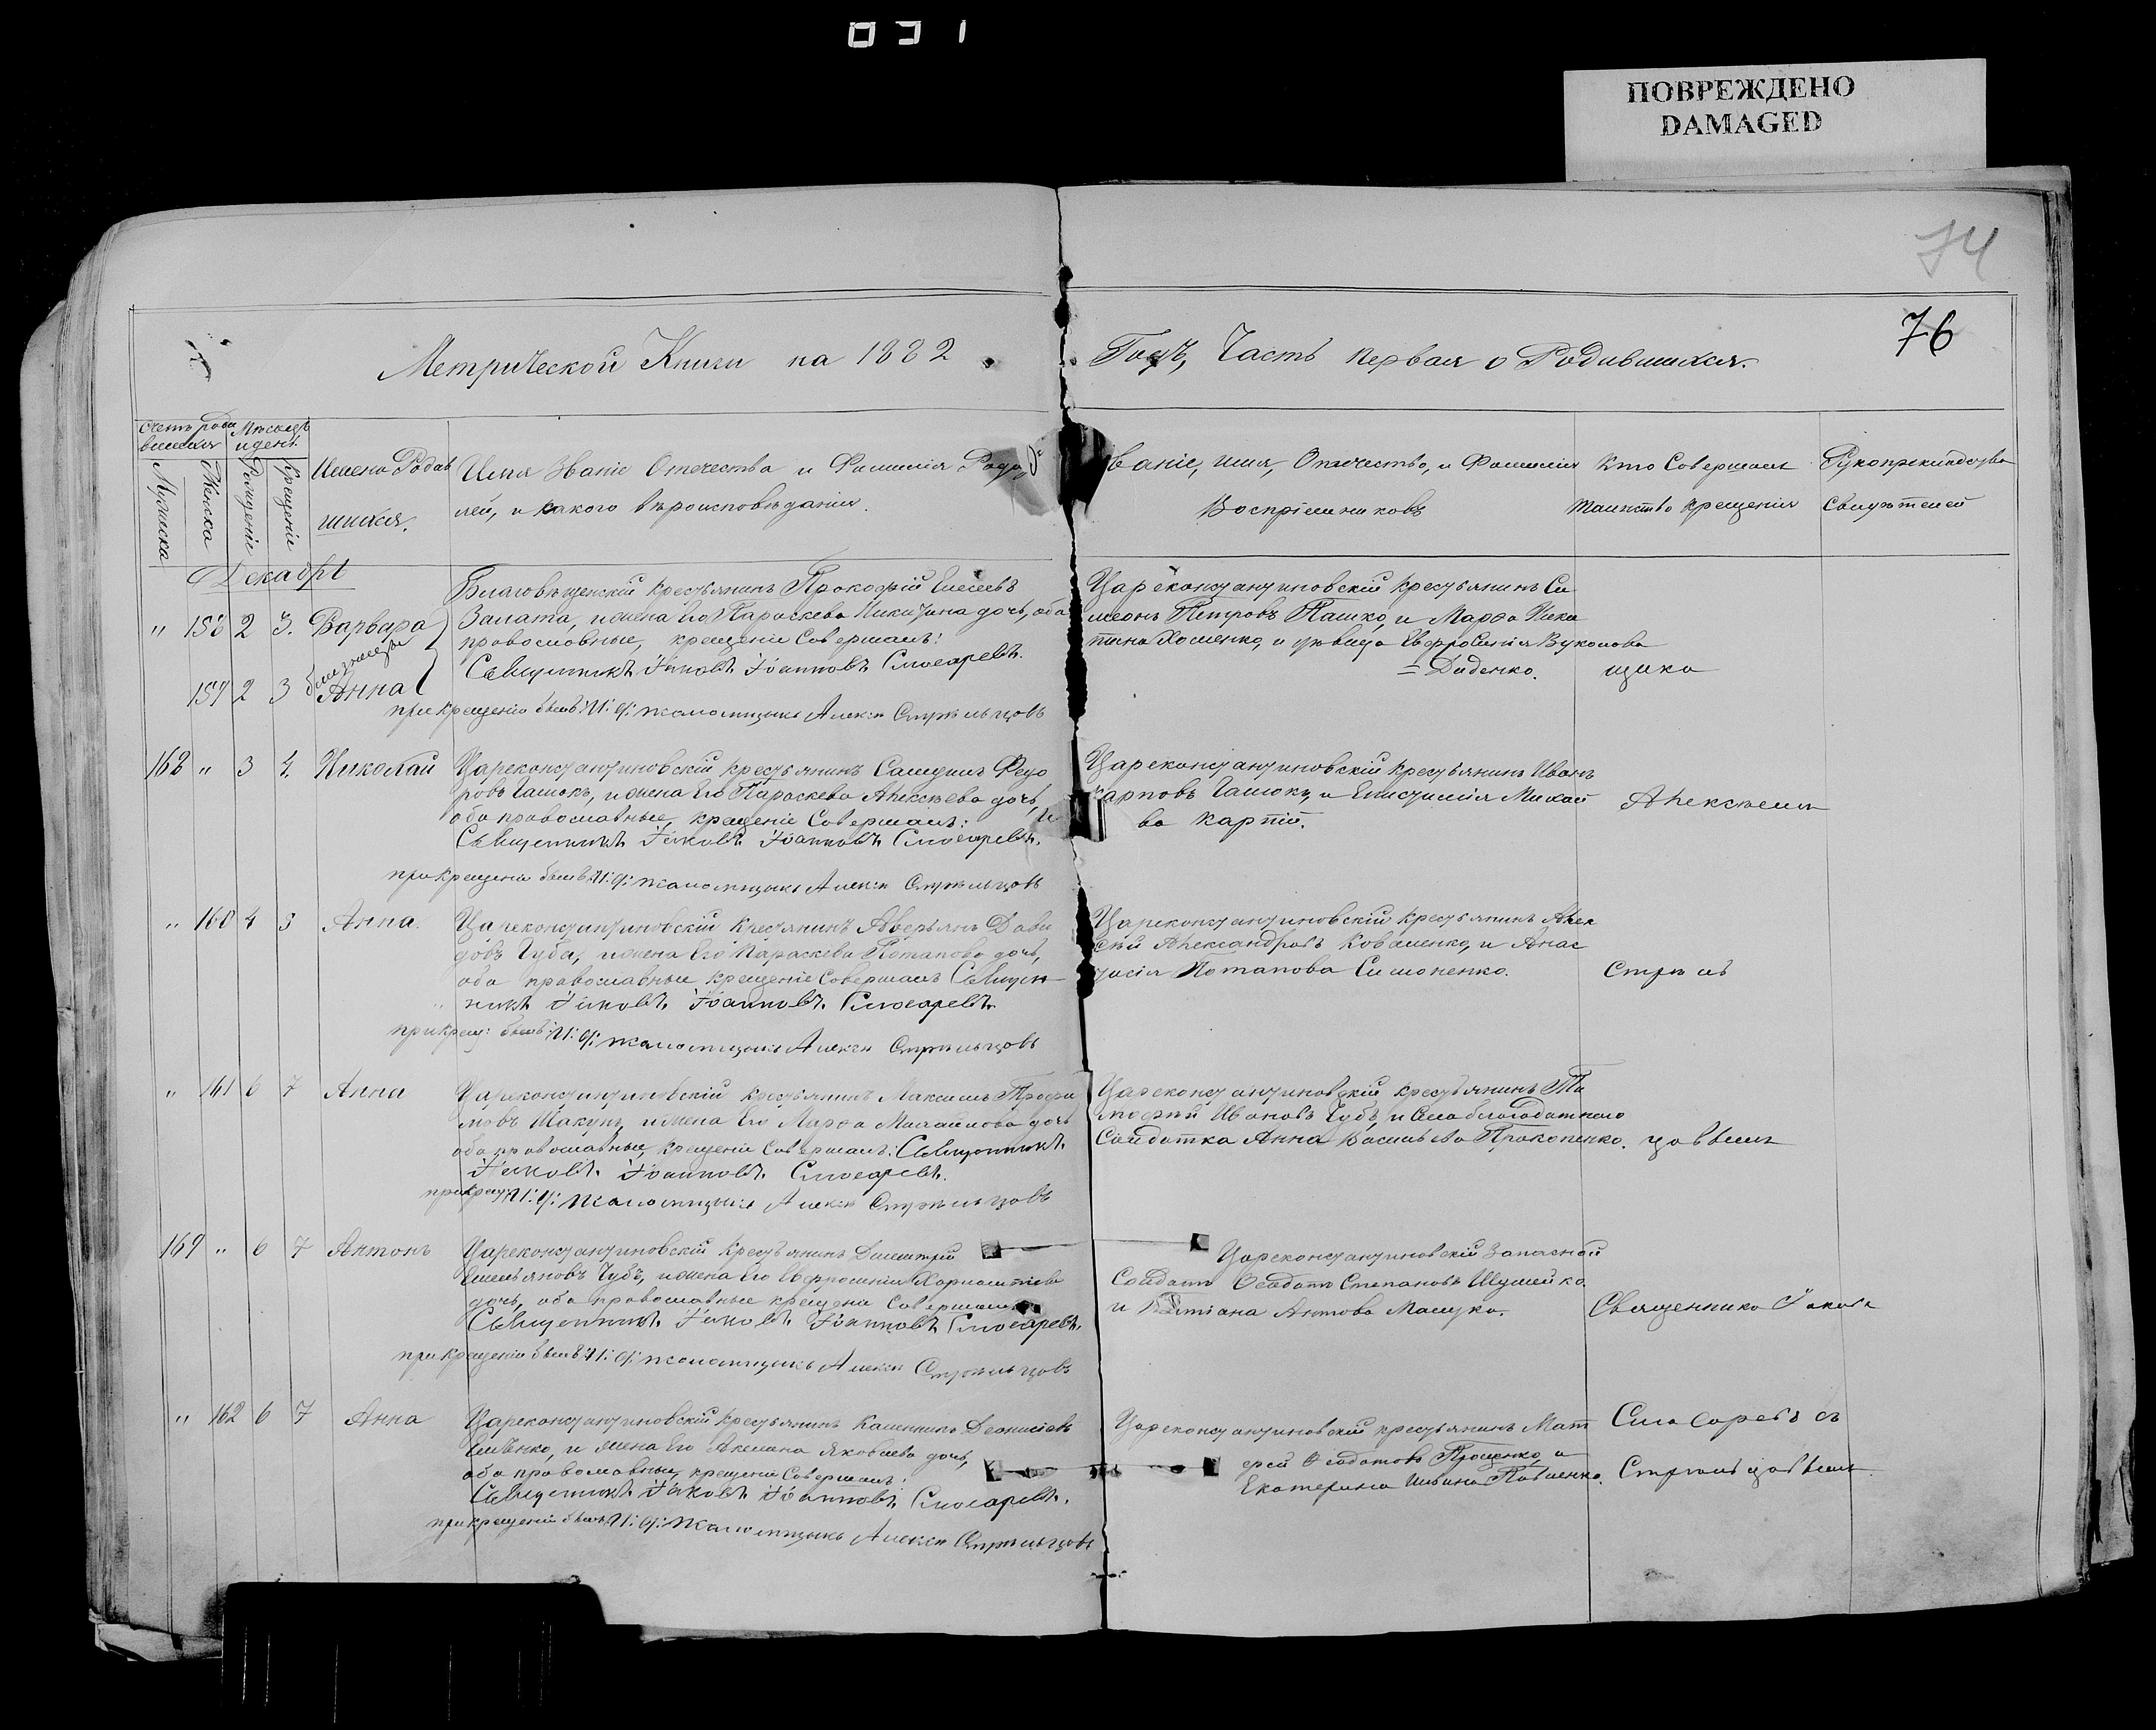 ПОВРЕЖДЕНО
DAMAGED
74
76
Метрической Книги на 1882
Годъ, Часть первая о Родившихся.
Счетъ роди
вшихся
Мѣсяцъ
и день.
Мужеска
Женска
Рожденіе
Крещеніе
Имена Родив
шихся.
Имя Званіе Отечества и Фамилія Роди
лей, и какого вѣроисповѣданія.
Званіе, имя, Отчество, и Фамилія
Воспріемниковъ
Кто Совершалъ
таинство крещенія
Рукоприкладства
Свидѣтелей
Декабрь
" 158 2 3. Варвара
близнецы
159 2 3 Анна
Благовѣщенскій крестьянинъ Прокофій Елисеевъ
Залата, и жена его Параскева Никитина дочь, оба
православные, крещеніе Совершалъ:
Священникъ Іаковъ Іоанновъ Слюсаревъ.
при крещеніи былъ И: д: псаломщика Алексѣй Стрѣльцовъ
Цареконстантиновскій крестьянинъ Си
меонъ Петровъ Пашко, и Марфа Ники
тина Хоменко, и дѣвица Евфросинія Вуколова
= Диденко.
щика
168 " 3 4. Николай
Цареконстантиновскій крестьянинъ Самуилъ Федо
ровъ Гашокъ, и жена Его Параскева Алексѣева дочь,
оба православные, крещеніе Совершалъ:
Священникъ Іаковъ Іоанновъ Слюсаревъ.
при крещеніи былъ И: д: псаломщика Алексѣй Стрѣльцовъ
Цареконстантиновскій крестьянинъ Иванъ
Карповъ Гашокъ, и Епистимія
ва Карпій.
Алексѣемъ
" 160 4 5 Анна.
Цареконстантиновскій Крестьянинъ Аверьянъ Дави
довъ Губа, и жена Его Параскева Потапова дочь,
оба православные крещеніе Совершалъ Священ-
никъ Іаковъ Іоанновъ Слюсаревъ.
при крещ: былъ И: д: псаломщика Алексѣй Стрѣльцовъ
Цареконстантиновскій крестьянинъ Алек
сѣй Александровъ Коваленко, и Анас
тасія Потапова Симоненко.
Стрѣль
" 161 6 7 Анна
Цареконстантиновскій Крестьянинъ Максимъ Трофи
мовъ Шакунъ, и жена Его Марфа Михайлова дочь
оба православные, крещеніе Совершалъ: Священникъ
Іаковъ Іоанновъ Слюсаревъ.
при крещ: И: д: псаломщика Алексѣй Стрѣльцовъ
Цареконстантиновскій крестьянинъ Ти
мофей Ивановъ Чубъ, и Села благодатнаго
Солдатка Анна Васильева Прокопенко.
цовымъ
169 " 6 7 Антонъ
Цареконстантиновскій Крестьянинъ Димитрій
Емельяновъ Чубъ, и жена Его Евфросинія Харлампіева
дочь, оба православные крещеніе Совершалъ
Священникъ Іаковъ Іоанновъ Слюсаревъ.
при крещеніи былъ И: д: псаломщика Алексѣй Стрѣльцовъ
Цареконстантиновскій Запасной
Солдатъ Феодотъ Степановъ Шумейко.
и Татіана Антова Мацука.
Священника Іакова
" 162 6 7 Анна
Цареконстантиновскій крестьянинъ Калинникъ Деонисіевъ
и жена Его Акилина Яковлева дочь,
оба православные, крещеніе Совершалъ:
Священникъ Іаковъ Іоанновъ Слюсаревъ.
при крещеніи былъ И: д: псаломщика Алексѣй Стрѣльцовъ
Цареконстантиновскій крестьянинъ Мат
фей Феодотовъ Проценко, и
Екатерина Ильина Павленко.
Слюсаревъ съ
Стрѣльцовымъ